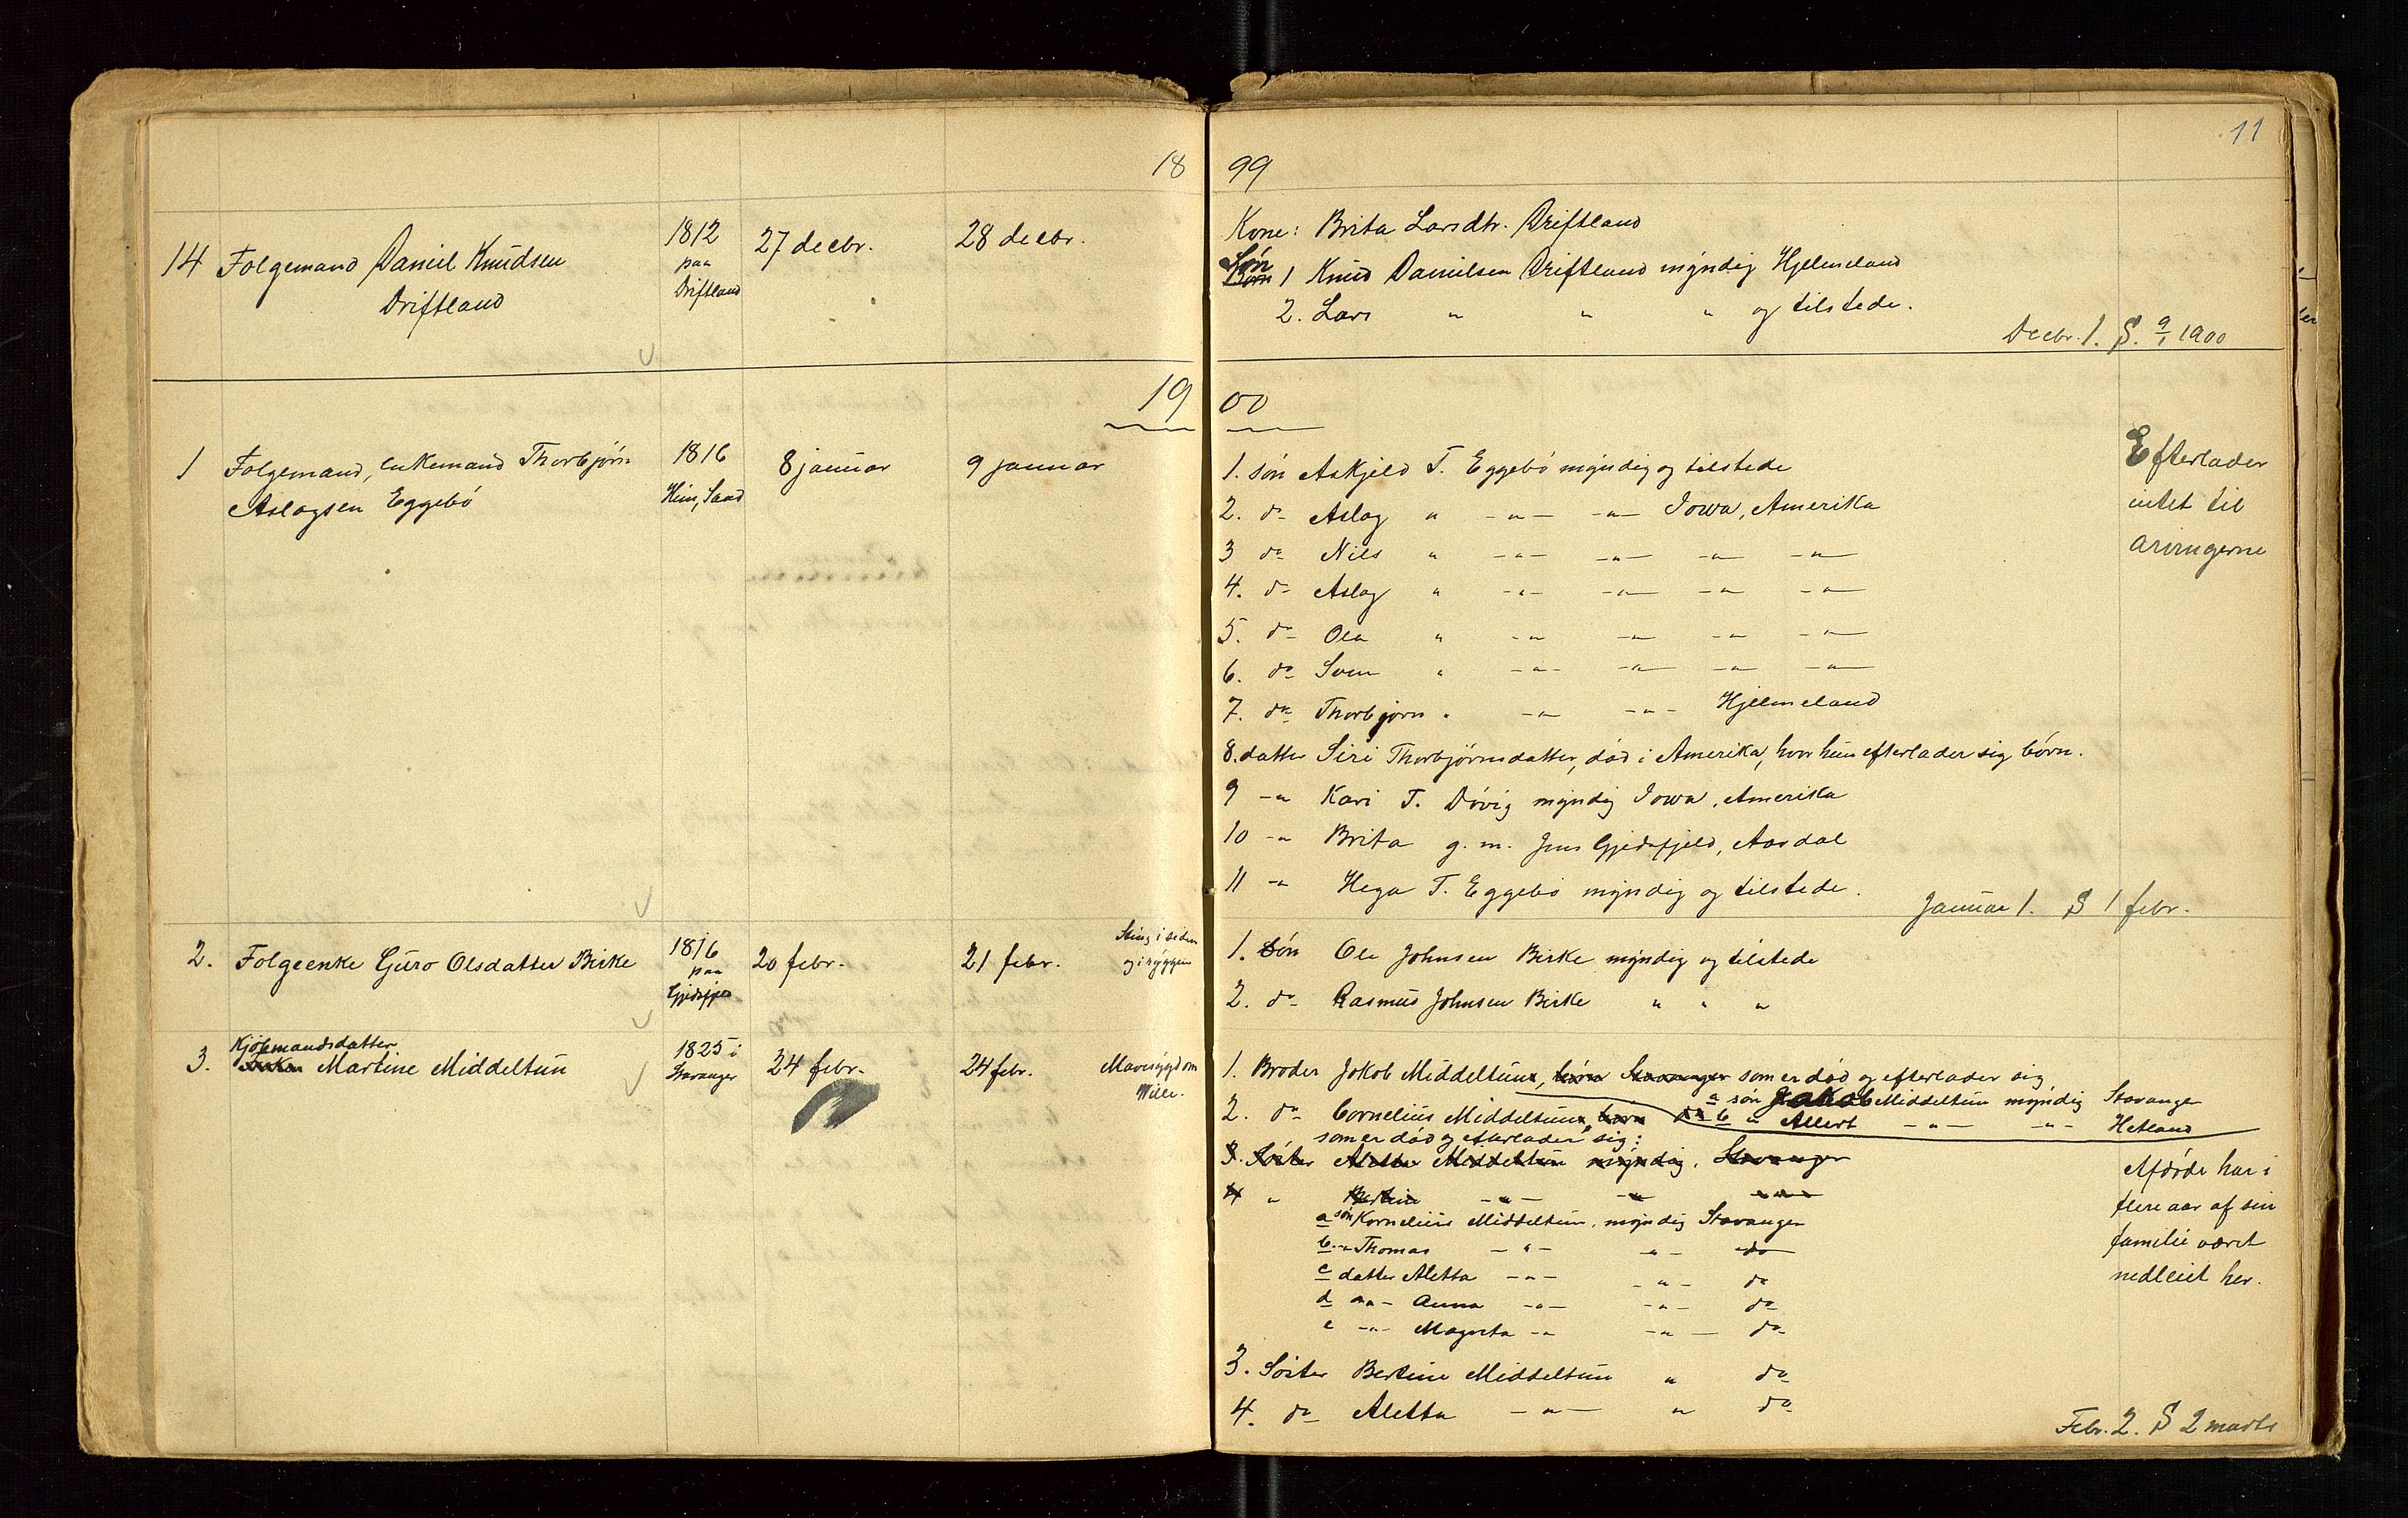 11
18 99
14 Folgemand Daniel Knudsen
Driftland
1812
paa
Driftland
27 decbr.
28 decbr.
Kone: Brita Larsdtr. Driftland
Søn
Børn 1 Knud Danielsen Driftland myndig Hjelmeland
2. Lars " " " og tilstede.
Decbr. 1. S. 9/1 1900
19 00
1 Folgemand, enkemand Thorbjørn
Aslagsen Eggebø
1816
Hein, Sand
8 januar
9 januar
1. søn Askjeld T. Eggebø myndig og tilstede
2. do Aslag " -"- -"- Iowa, Amerika
3 do Nils " -"- -"- -"- -"-
4. do Aslag " -"- -"- -"- -"-
5. do Ola " -"- -"- -"- -"-
6. do Sven " -"- -"- -"- -"-
7. do Thorbjørn " -"- -"- Hjelmeland
8. datter Siri Thorbjørnsdatter, død i Amerika, hvor hun efterlader sig børn.
9 -"- Kari T. Døvig myndig Iowa, Amerika
10 -"- Brita g. m. Jens Gjedefjeld, Aardal
11 -"- Hega T. Eggebø myndig og tilstede.
Efterlader
intet til
arvingerne
Januar 1. S 1 febr.
2. Folgeenke Guro Olsdatter Birke
1816
paa
20 febr.
21 febr.
Sting i siden
og i ryggen
1. Søn Ole Johnsen Birke myndig og tilstede
2. do Rasmus Johnsen Birke " " "
Kjøbmandsdatter
3. Martine Middeltun
1825 i
Stavanger
24 febr.
24 febr.
Mavesygdom
Wille.
1. Broder Jakob Middeltun, børn Stavanger som er død og efterlader sig
a søn Jakob Middeltun myndig Stavanger
2. do Cornelius Middeltun, børn do b " Allert -"- -"- Hetland
som er død og efterlader sig:
3. Søster Aletta Middeltun myndig. Stavanger
4 " Bertine -"- -"- -"-
a søn Kornelius Middeltun, myndig Stavanger
b -"- Thomas -"- -"- do
c datter Aletta -"- -"- do
d -"- Anna -"- -"- do
e -"- Magreta -"- -"- do
3. Søster Bertine Middeltun " do
4. do Aletta -"- " do
Afdøde har i
flere aar af sin
familie været
nedleiet her.
Febr. 2. S 2 marts